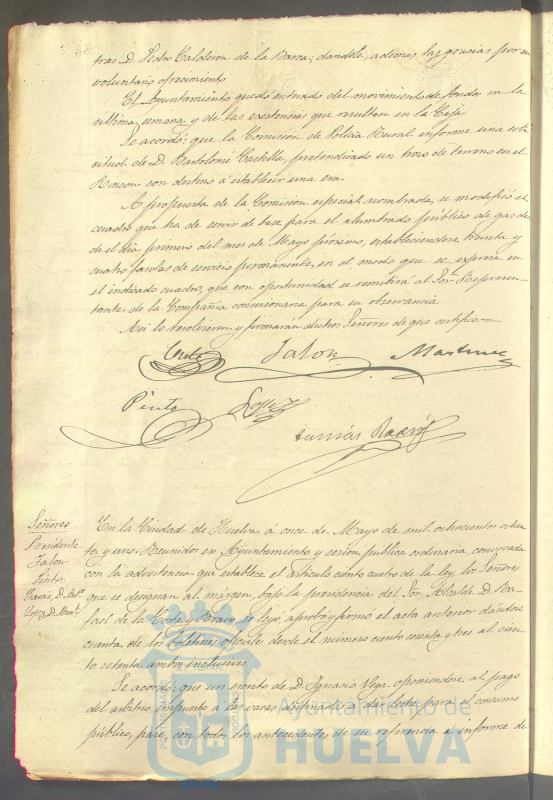 tras D. Pedro Calderon de la Barca, dandole, ademas las gracias por su
voluntario ofrecimiento
El Ayuntamiento quedó enterado del movimiento de fondos en la
ultima semana y de las existencias que resultan en la Caja
Se acordó: que la Comision de Policia Rural informe una soli
citud de D. Bartolomé Castilla, pretendiendo un trozo de terreno en el
Rincon con destino á establecer una era
A propuesta de la Comision especial nombrada, se modificó el
cuadro que ha de servir de base para el alumbrado público de gas des
de el dia primero del mes de Mayo próximo, estableciendose treinta y
cuatro farolas de servicio permanente, en el modo que se expresa en
el indicado cuadro, que con oportunidad se remitirá al Sor. Represen-
tante de la Compañia concesionaria para su observancia
Asi lo resolvieron y firmaran dichos Señores de que certifico
Jalon
Martinez
Pinto
Lopez
Señores
Presidente
Jalon
Pinto
Garcia, D. Anto.
Lopez, D. Manl.
En la Ciudad de Huelva á once de Mayo de mil ochocientos ochen
ta y uno: Reunidos en Ayuntamiento y sesion publica ordinaria, convocada
con la advertencia que establece el articulo ciento cuatro de la ley, los Señores
que se designan al márgen, bajo la presidencia del Sor. Alcalde D. Ra-
fael de la Corte y Bravo, se leyó, aprobó y firmó el acta anterior dándose
cuenta de los boletines oficiales desde el número ciento sesenta y tres al cien
to setenta ambos inclusives
Se acordó: que un escrito de D. Ignacio Vega oponiendose al pago
del arbitrio impuesto a las vacas destinadas a dar leche para el consumo
público, pase, con todos los antecedentes de su referencia á informe de
Ayuntamiento de
HUELVA